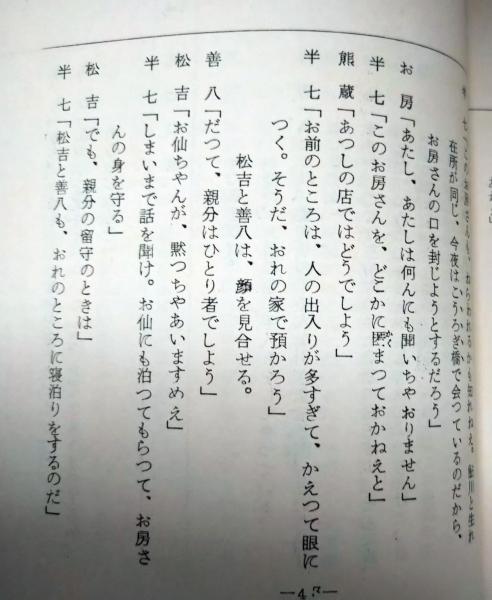 半七「このお房さんも、ねらわれるかも知れねえ。鮎川と生れ
在所が同じ、今夜はこうろぎ橋で会つているのだから、
お房さんの口を封じようとするだろう」
お房「あたし、あたしは何んにも聞いちやおりません」
半七「このお房さんを、どこかに匿まつておかねえと」
熊蔵「あつしの店ではどうでしよう」
半七「お前のところは、人の出入りが多すぎて、かえつて眼に
つく。そうだ、おれの家で預かろう」
松吉と善八は、顔を見合せる。
善八「だつて、親分はひとり者でしよう」
松吉「お仙ちやんが、黙つちやあいますめえ」
半七「しまいまで話を聞け。お仙にも泊つてもらつて、お房さ
んの身を守る」
松吉「でも、親分の留守のときは」
半七「松吉と善八も、おれのところに寝泊りをするのだ」